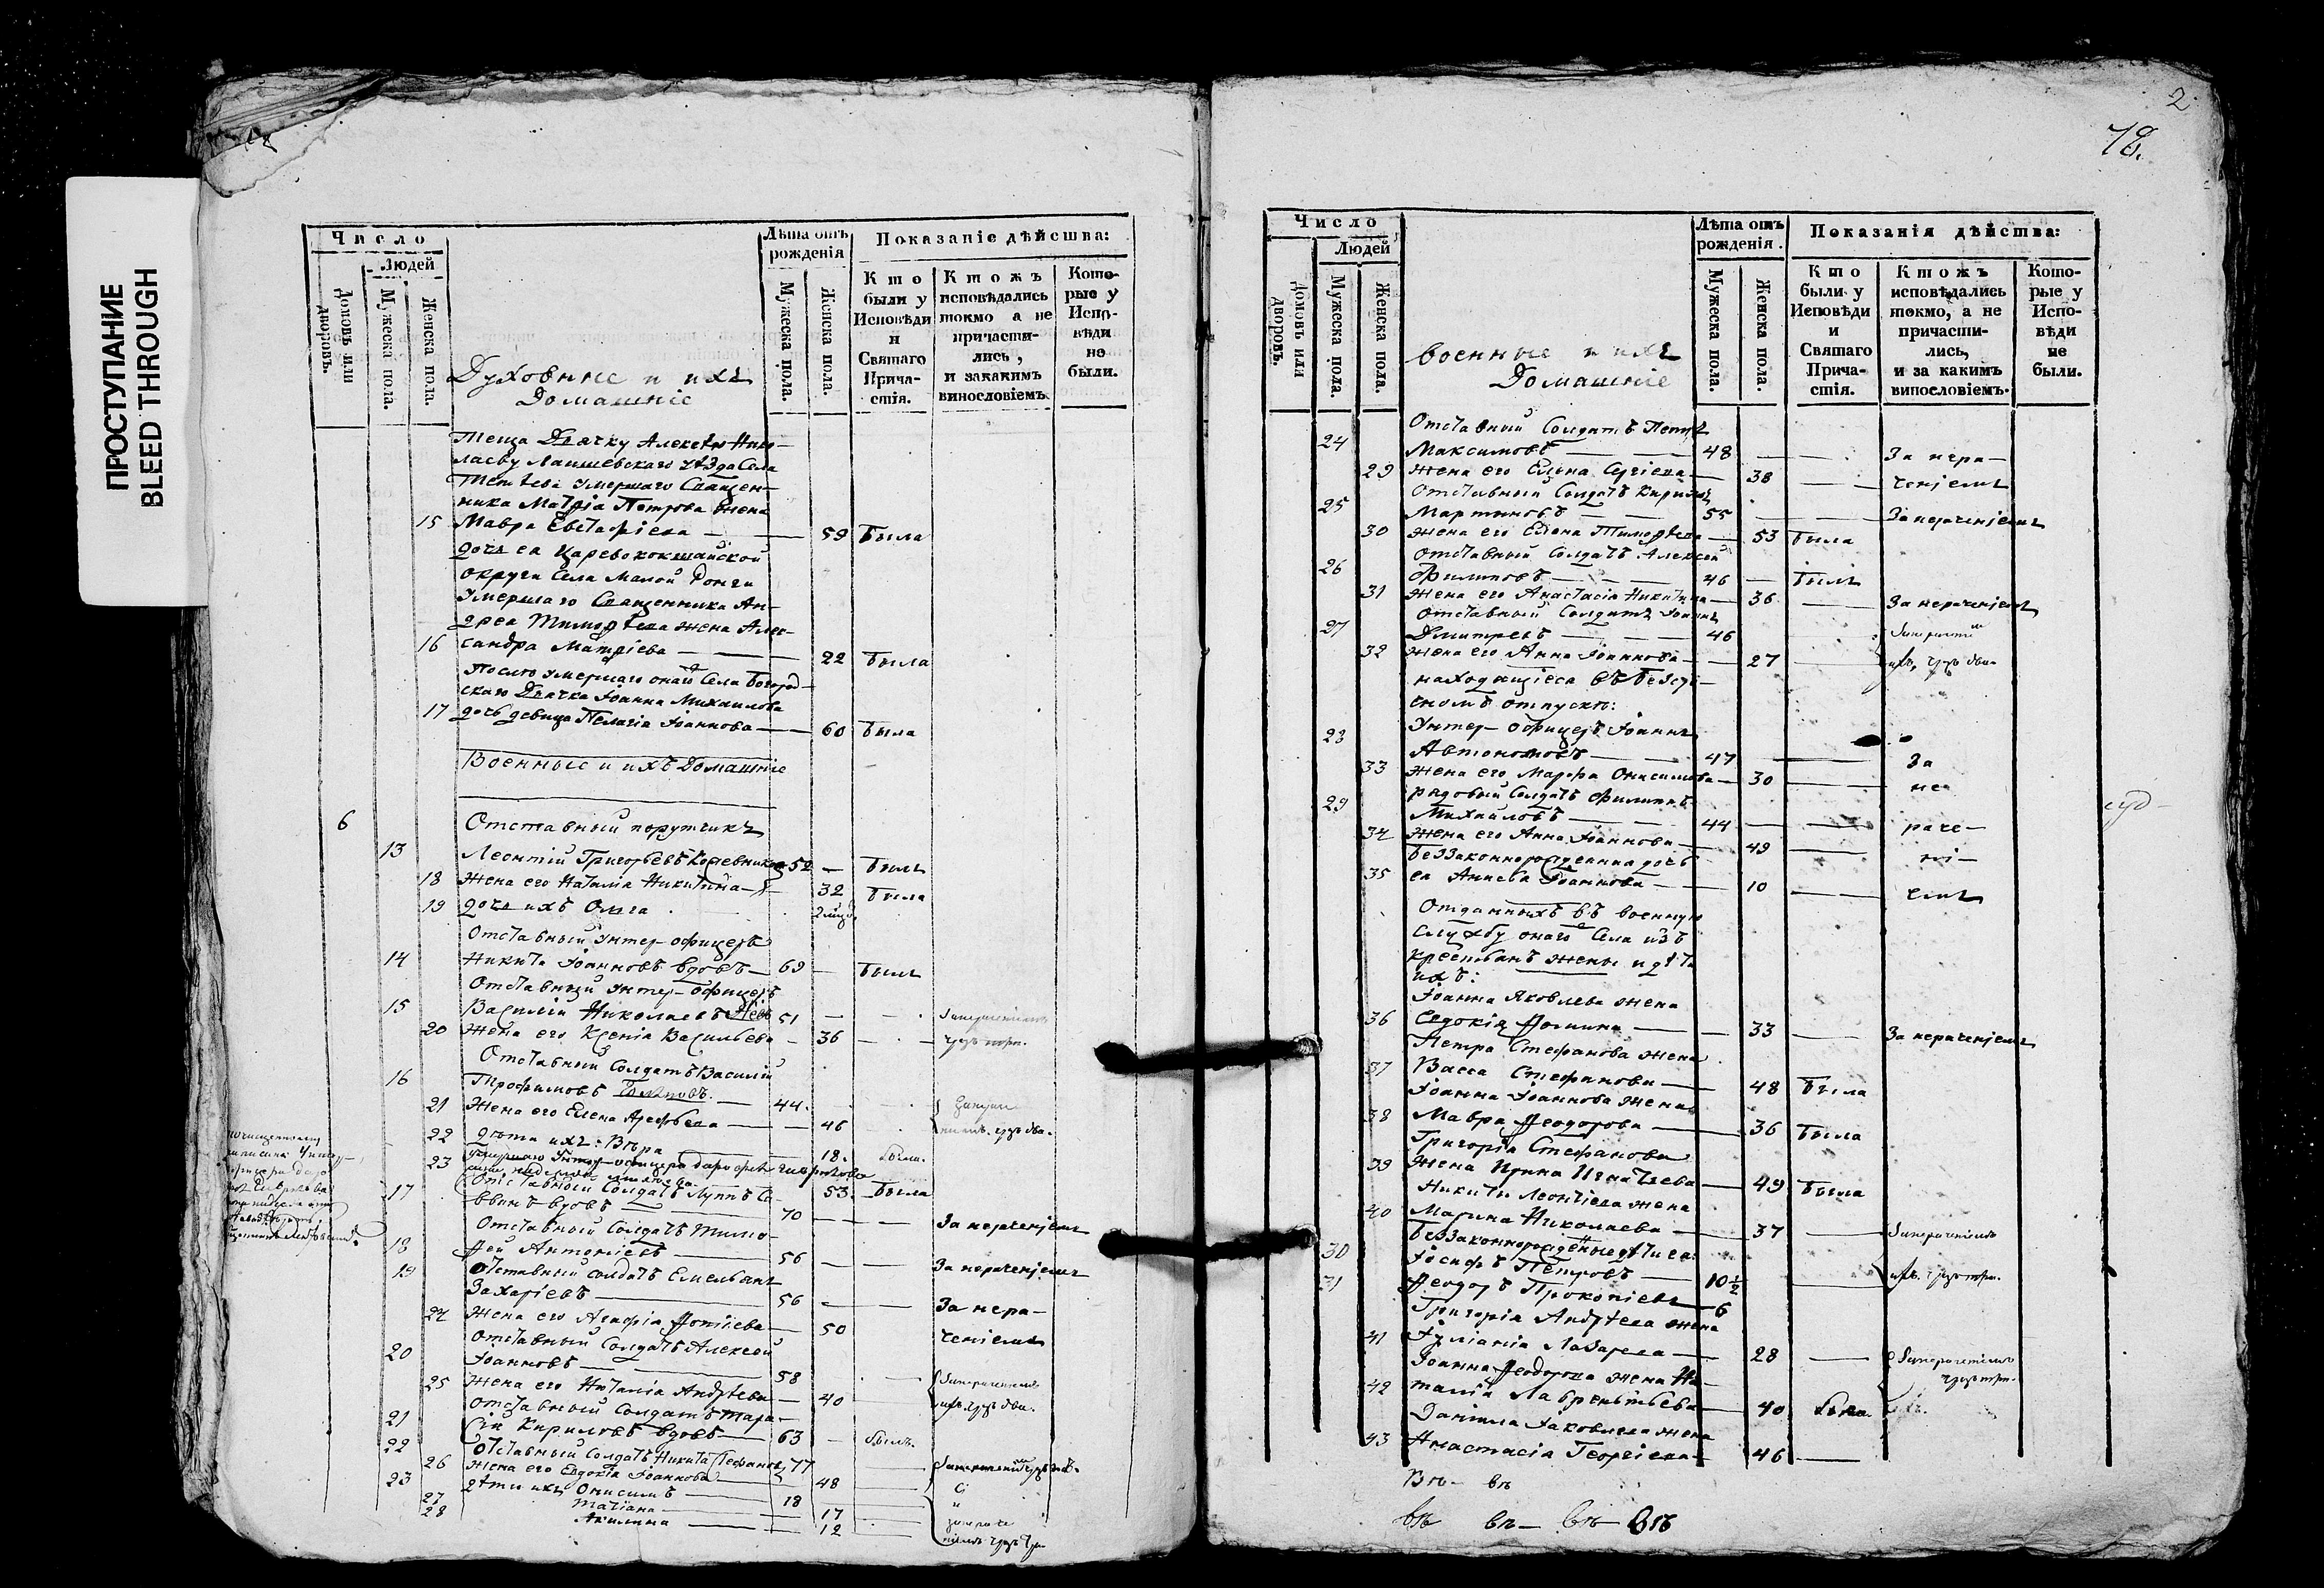 ПРОСТУПАНИЕ
BLEED THROUGH
Число
Людей
Домовъ или дворовъ.
Мужеска пола.
Женска пола.
Духовные и ихъ
Домашніе
Лѣта отъ рожденія
Мужеска пола.
Женска пола.
Показаніе дѣйства:
Кто были у Исповѣди и Святаго Причастія.
Ктожъ исповѣдались токмо а не причастились, и закакимъ винословіемъ.
Которые у Исповѣди не были.
Теща Дьячку Алексѣю Нико-
лаеву Лаишевскаго уѣзда Села
умершаго Священ-
ника Матѳія Петрова жена
15 Мавра Евстафіева — 59 Была
дочь ея Царевококшайской
округи Села Малой Ронги
Умершаго Священника Ан-
дрея Тимофѣева жена Алек-
16 сандра Матѳіева — 22 Была
После умершаго онаго Села Богород-
скаго Дьячка Іоанна Михаилова
17 дочь девица Пелагія Іоаннова — 60 Была
Военные и ихъ Домашніе
6 Отставный порутчикъ
13 Леонтій Григорьевъ Кожевниковъ 52 — Былъ
18 Жена его Наталія Никитина — 32 Была
19 дочь ихъ Ольга
Отставный Унтер-офицеръ
14 Никита Іоанновъ вдовъ — 69 — Былъ
Отставный Унтер-Офицеръ
15 Василій Николаевъ 51
20 Жена его Ксенія Васильева — 36
Отставный Солдатъ Василій
16 Трофимовъ — 44
21 Жена его Елена Арефьева — 46
22 дѣти ихъ: Вѣра — 18. была.
23 53 Была
17 Отставный Солдатъ Луппъ Са-
ввинъ вдовъ — 70 — За нераченіемъ
Отставный Солдатъ Тимо-
18 фей Антоніевъ — 56 — За нераченіемъ
19 Отставный солдатъ Емельянъ
Захаріевъ — 56 — За нера-
24 Жена его Агафія Фотіева — 50 ченіемъ
Отставный Солдатъ Алексей
20 Іоанновъ — 58
25 Жена его Наталія Андреева — 40
Отставный Солдатъ Тара-
21 сій Кириловъ вдовъ — 63 — былъ.
22 Отставный Солдатъ Никита Стефановъ 77
26 Жена его Евдокія Іоаннова — 48
23 дѣти ихъ Онисимъ — 18
27 Татіана — 17
28 Акилина — 12
2
78.
Число
Людей
Домовъ или дворовъ.
Мужеска пола.
Женска пола.
Военные и ихъ
Домашніе
Лѣта отъ рожденія.
Мужеска пола.
Женска пола.
Показанія дѣйства:
Кто были у Исповѣди и Святаго Причастія.
Ктожъ исповѣдались токмо, а не причастились, и за какимъ винословіемъ.
Которые у Исповѣди не были.
Отставный Солдатъ Петръ
24 Максимовъ — 48 — За нера-
29 Жена его Елена Сергіева — 38 — ченіемъ
Отставный Солдатъ Кирилъ
25 Мартиновъ — 55 — За нераченіемъ
30 Жена его Елена Тимофѣева — 53 Была
Отставный Солдатъ Алексей
26 Филиповъ — 46 — Былъ
31 Жена его Анастасія Никитина — 36 — За нераченіемъ
Отставный Солдатъ Іоаннъ
27 Дмитревъ — 46
32 Жена его Анна Іоаннова — 27
находящіеся въ безсро-
чномъ отпуске:
Унтер-офицеръ Іоаннъ
28 Автономовъ — 47 — За
33 Жена его Марфа Онисимова — 30 — не
рядовый Солдатъ Филиппъ
29 Михайловъ — 44 — раче-
34 Жена его Анна Іоаннова — 49 — ні-
Беззаконнорожденная дочь
35 ея Іоаннова — 10 — емъ
Отданныхъ въ военную
службу онаго Села изъ
крестьянъ жены и дѣти
ихъ:
Іоанна Яковлева жена
36 Евдокія Фомина — 33 — За нераченіемъ
Петра Стефанова жена
37 Васса Стефанова — 48 Была
Іоанна Іоаннова жена
38 Мавра Феодорова — 36 Была
Григорія Стефанова
39 Жена Ирина Игнатьева — 49 Была
Никиты Леонтіева жена
40 Марина Николаева — 37
Беззаконнорожденные дѣти ея:
30 Іосифъ Петровъ — 10 ½
31 Феодоръ Прокопіевъ — 6
Григорія Андреева жена
41 Іуліанія Лазарева — 28
Іоанна Феодорова жена На-
42 талія Лаврентьева — 40 была
Даніила Іаковлева жена
43 Анастасія Георгіева — 46